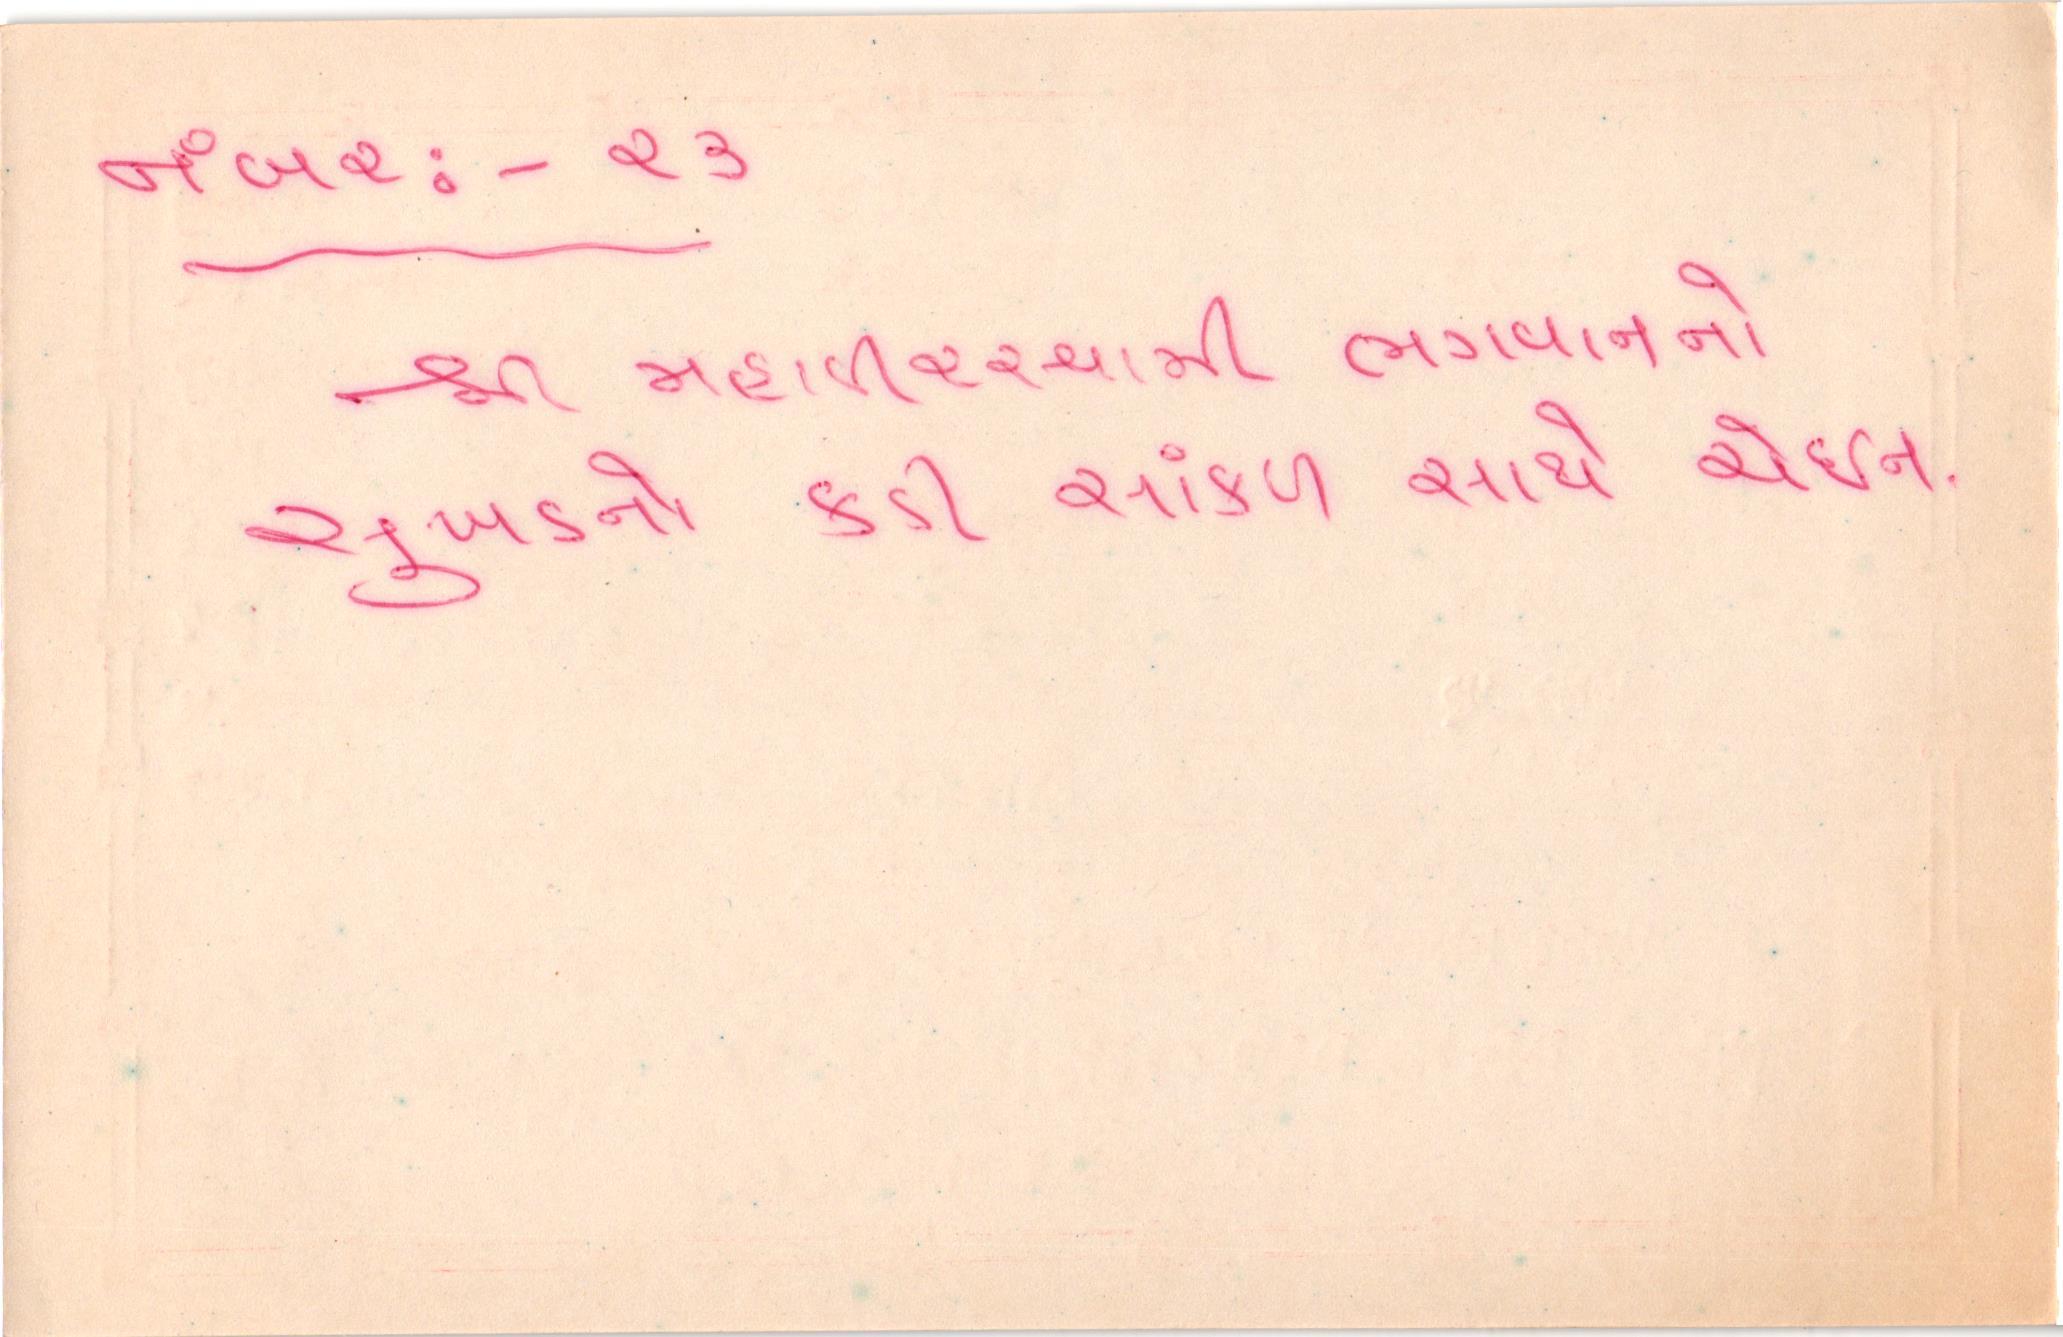 નંબર:- ૨૩
શ્રી મહાવીરસ્વામી ભગવાનનો
સુખડનો કડી સાંકળ સાથે ચેઈન.